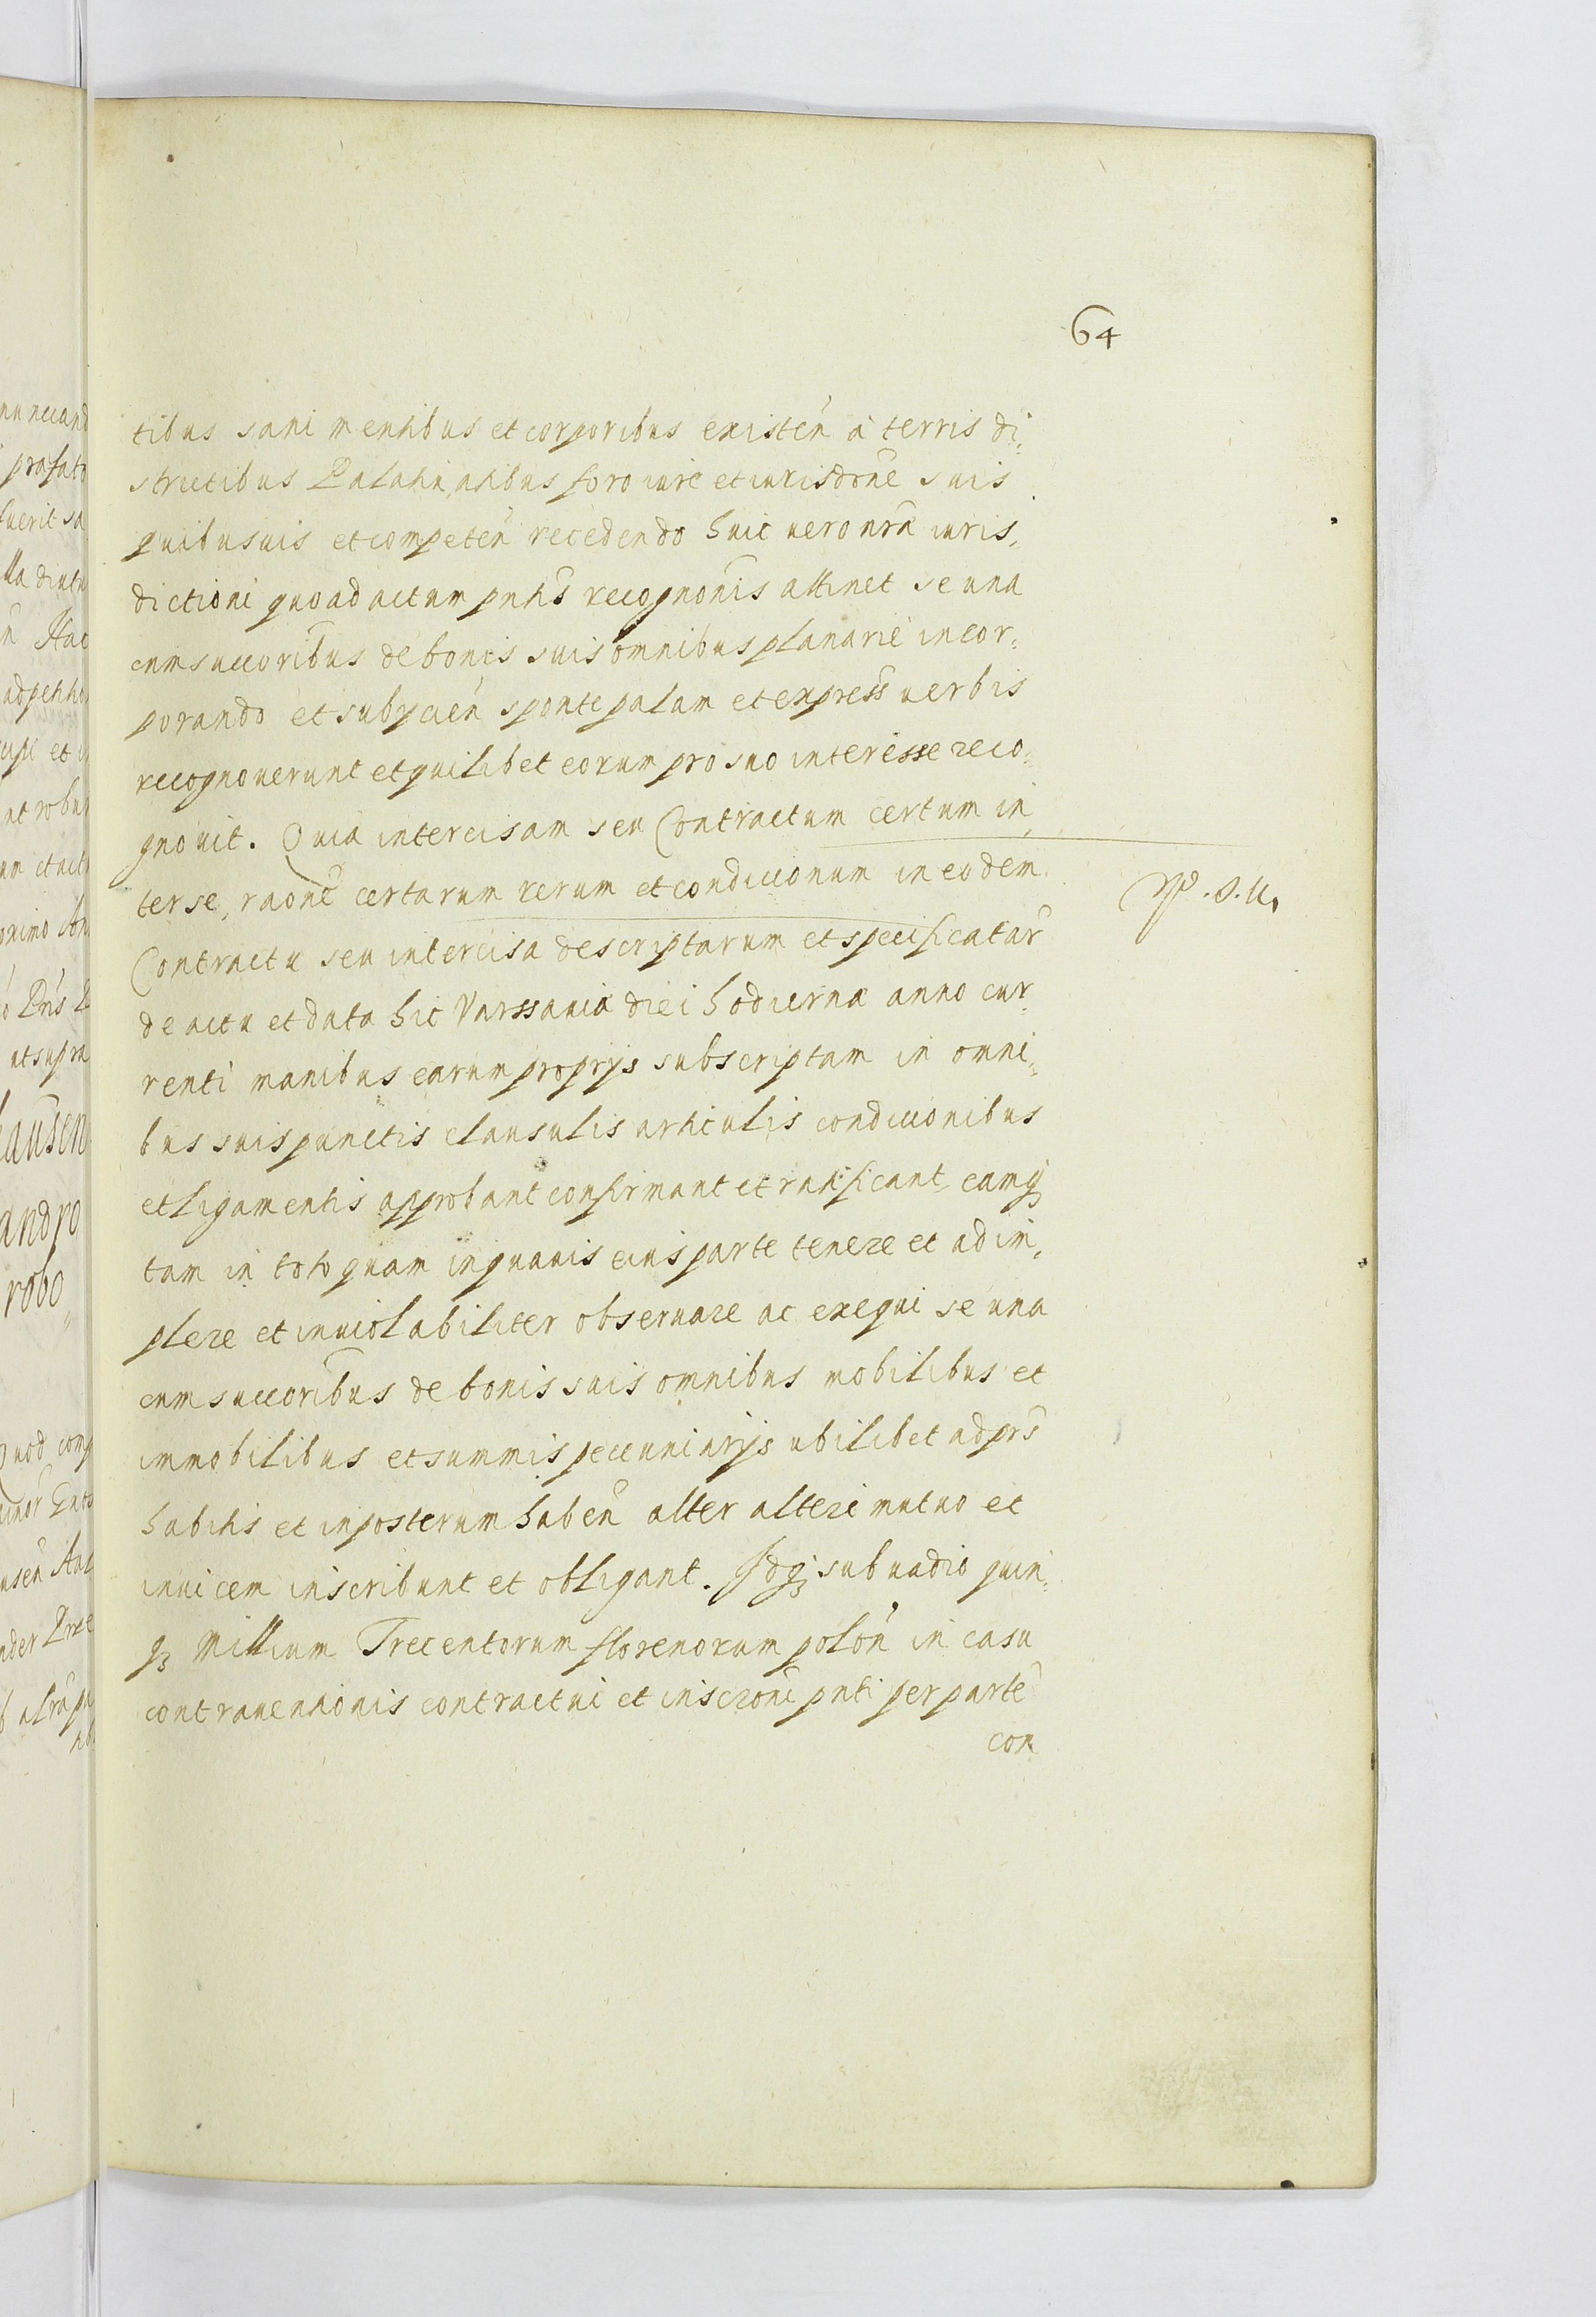 64
tibus sani mentibus et corporibus existeñ à terris di⸗
strictibus Palatin atibus foro iure et iurisdône suis
quibusuis et competeñ recedendo huic uero nrã iuris⸗
dictioni quoad actum pntĩs recognonĩs attinet se una
cum succoribũs de bonis suis omnibus planarie incor⸗
porando et subycieñ sponte palam et express̃ uerbis
recognouerunt et quilibet eorum pro suo interesse reco⸗
gnouit. Quia intercisam seu Contractum certum in
ter se, raonẽ certarum rerum et condicionum in eodem
Contractu seu intercisa descriptarum et specificatar̃
de actu et data hic Varssauia diei hodierna anno cur⸗
renti manibus earum proprys subscriptam in omni⸗
bus suis punctis clausulis articulis condicionibus
et ligamentis approbant confirmant et ratificant eamq3
tam in toto quam in quauis eius parte tenere et adim⸗
plere et inuiolabiliter obseruare ac exequi se una
cum succoribũs de bonis suis omnibus mobilibus et
immobilibus et summis pecuniarys ubilibet ad prs̃
habitis et in posterum habeñ alter alteri mutuo et
inuicem inscribunt et obligant. Idq3 sub uadio quin⸗
q3 Millium Trecentorum florenorum poloñ in casu
contrauentionis contractui et inscronĩ pnti per partẽ
con